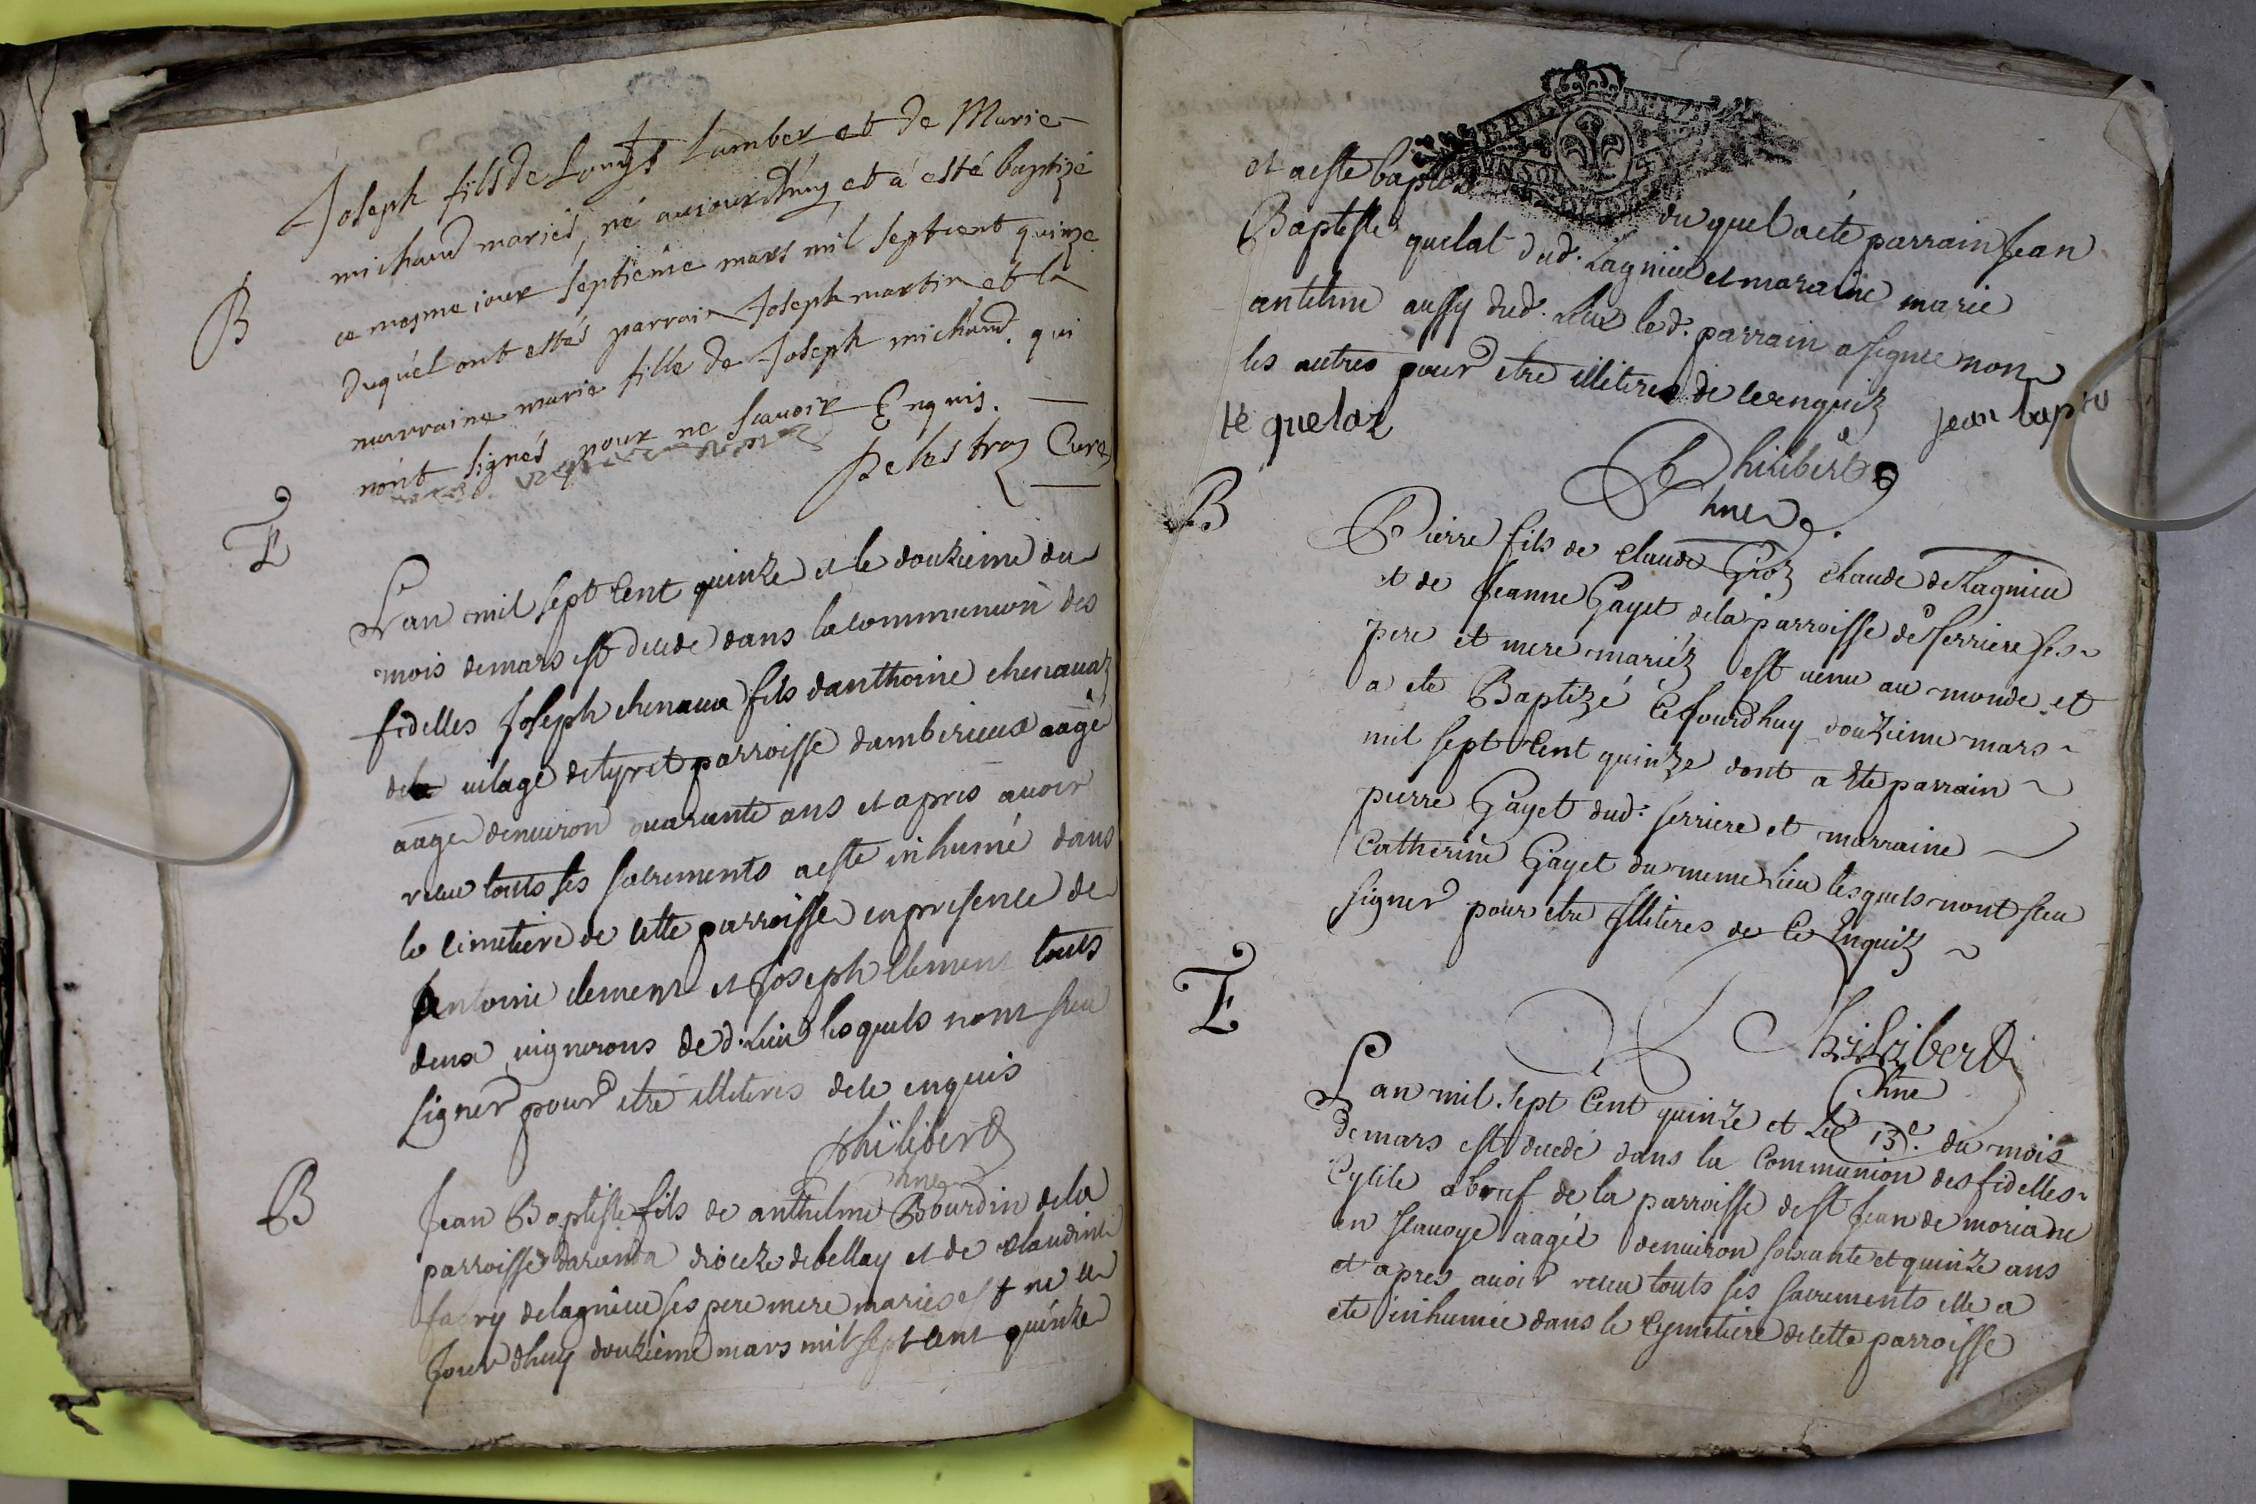 Joseph fils de Louys Lamber et de Marie
michaud mariés, né aujourdhuy et à esté baptizé
B
ce mesme jour septiéme mars mil septcent quinze
duquél ont estés parrain Joseph martin et la
marraine marie fille de Joseph michaud. qui
nónt signés pour ne scauoir Enquis.
Delestraz Curé
E
Lan mil sept Cent quinze et le douzieme du
mois demars est decede dans la communion des
fidelles Joseph chenaua fils danthoine chenauaz
dela uilage detyret parroisse dambirieux aagé
aage denuiron quarante ans et apres auoir
receu touts ses sacrements a este inhumé dans
le cimetiere de cette parroisse en presence de
Antoine clement et Joseph Clement touts
deux uignerons de d. Lieu lesquels nont sceu
signer pour etre illiteres dele enquis
philiberd
B
Jean Baptiste fils de anthelme Bourdin dela
parroisse daranda dioceze debellay et de Claudine
fabry delagnieu ses pere mere mariés est ne ce
Jourdhuy douzieme mars mil sept cent quinze
et a este baptisé
du quel a été parrain Jean
Baptiste quelat dud. Lagnieu et maraine marie
anthelme aussy dud. Lieu led. parrain a signé non
les autres pour etre illiteres de ce enquiz
Jean bapti
te quelaz
philiberd
B
Pierre fils de claude Groz chaude de Lagnieu
et de Jeanne Gayet dela parroisse de serriere ses
pere et mere mariéz est uenu au monde et
a ete Baptizé Cejourdhuy douzieme mars
mil sept Cent quinze dont a ete parrain
pierre Gayet dud. serriere et marraine
Catherine Gayet du meme Lieu lesquels nont sceu
signer pour etre illiteres de Ce Enquiz
philiberd
E
Lan mil sept Cent quinze et Le 13e. du mois
de mars est decedé dans la Communion des fidelles
de la parroisse de st Jean de moriane
en scauoye aagée denuiron soixante et quinze ans
et apres auoir receu touts ses sacrements elle a
ete inhumée dans le Cymetiere decette parroisse